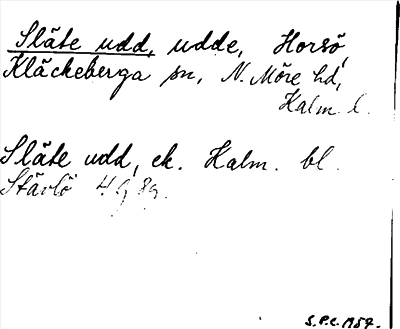 Släte udd, udde, Horsö,
Kläckeberga sn, N. Möre hd,
Kalm. l.
Släte udd, ek. Kalm. bl.
Stävlö 4 g 8 g.
S.P.C. 1957.